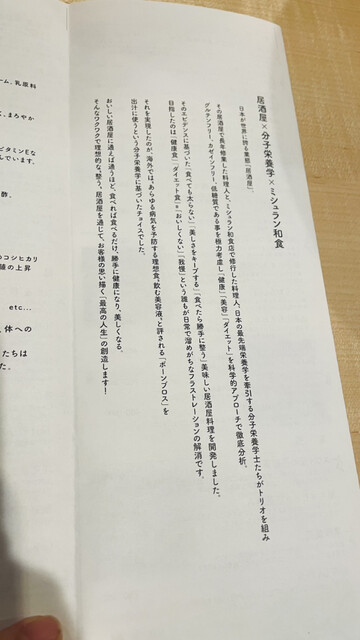 居酒屋×分子栄養学×ミシュラン和食
日本が世界に誇る業態「居酒屋」。
その居酒屋で長年修業した料理人と、ミシュラン和食店で修行した料理人、日本の最先端栄養学を牽引する分子栄養学士たちがトリオを組み
グルテンフリー、カゼインフリー、低糖質である事を極力考慮し「健康」「美容」「ダイエット」を科学的アプローチで徹底分析。
そのエビデンスに基づいた「食べても太らない」「美しさをキープする」「食べたら勝手に整う」美味しい居酒屋料理を開発しました。
目指したのは「健康食」「ダイエット食」=「おいしくない」「我慢」という誰もが日常で溜めがちなフラストレーションの解消です。
それを実現したのが、海外では、あらゆる病気を予防する理想食、飲む美容液、と評される「ボーンブロス」を
出汁に使うという分子栄養学に基づいたチョイスでした。
おいしい居酒屋に通えば通うほど、食べれば食べるだけ、勝手に健康になり、美しくなる。
そんなワクワクで理想的な“整う”居酒屋を通じて、お客様の思い描く「最高の人生」の創造します!
ーム、乳原料
まろやか
ビタミンEな
んでいます。
酢、
のコシヒカリ
値の上昇
etc...
体への
たちは
た。